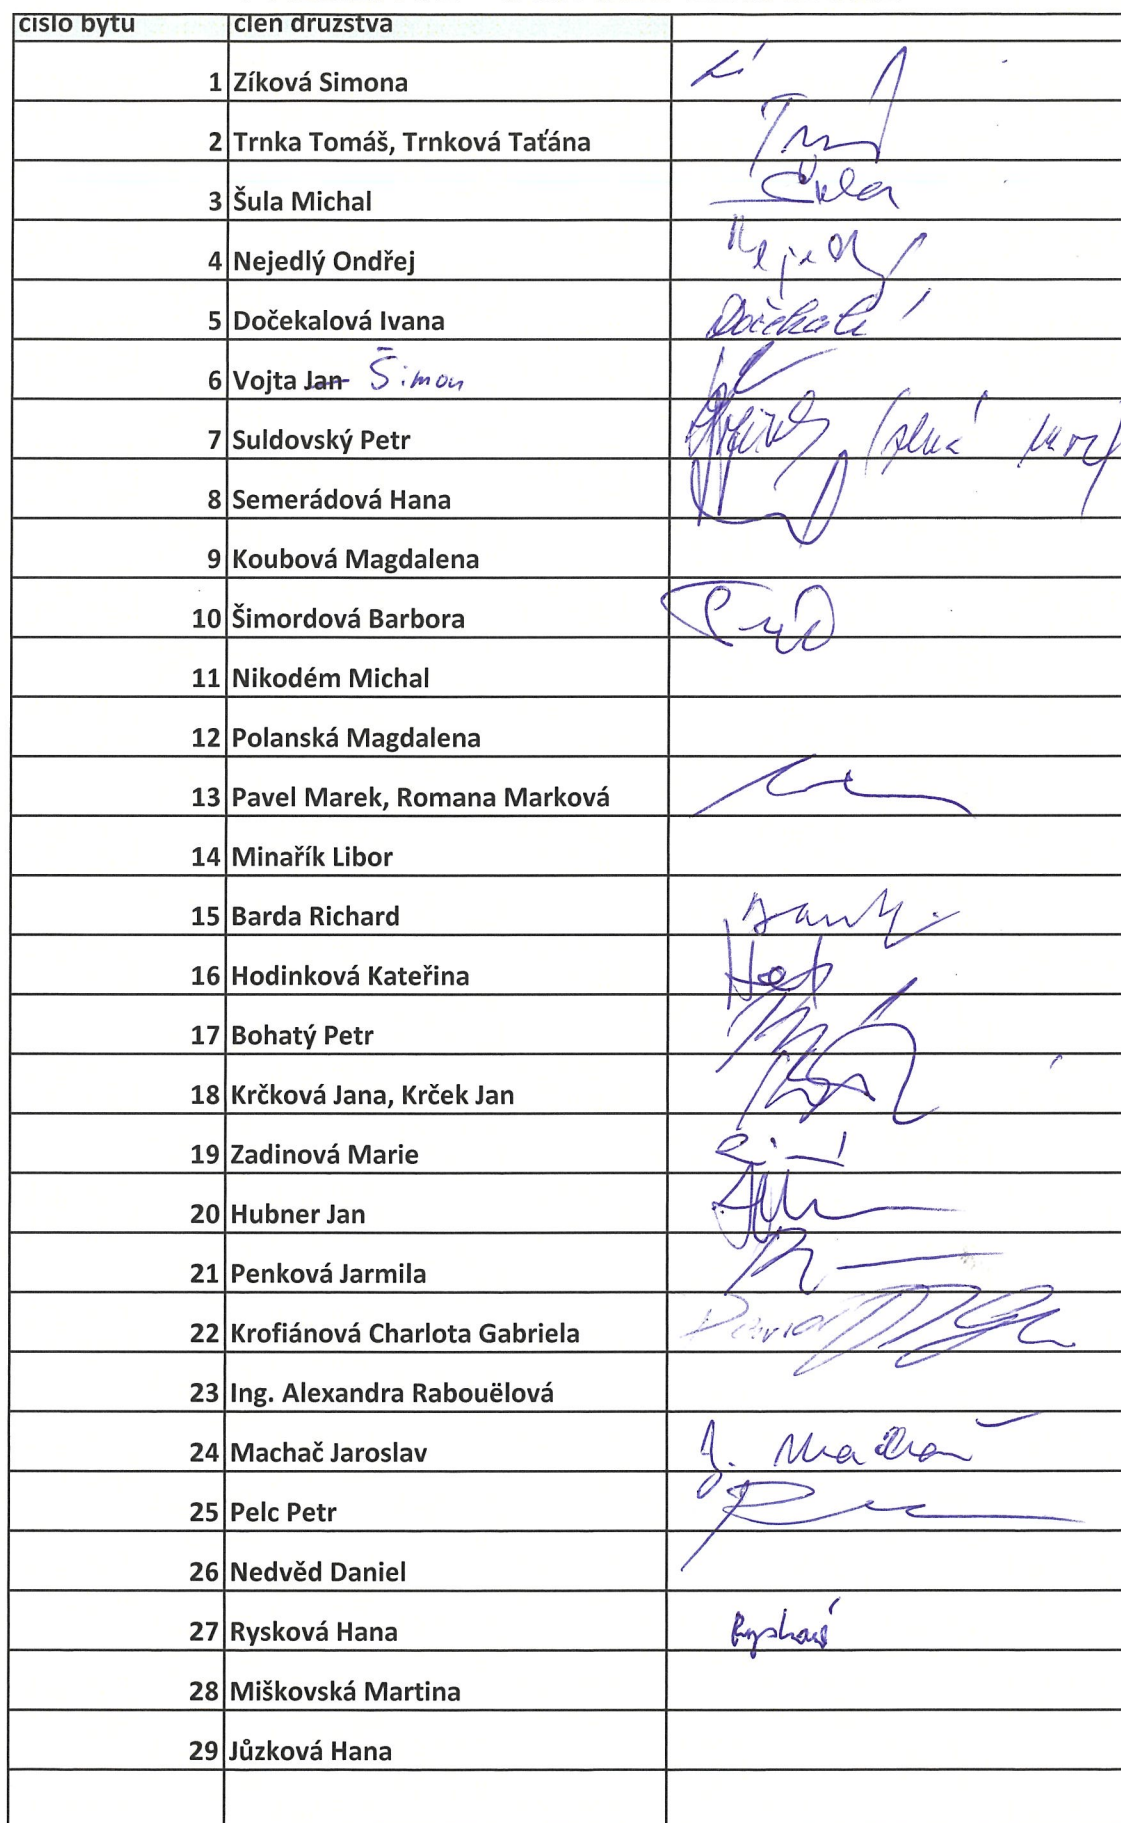 číslo bytu člen družstva
1 Zíková Simona
2 Trnka Tomáš, Trnková Taťána
3 Šula Michal Šula
4 Nejedlý Ondřej Nejedlý
5 Dočekalová Ivana Dočekalová
6 Vojta Jan Šimon
7 Suldovský Petr
8 Semerádová Hana
9 Koubová Magdalena
10 Šimordová Barbora
11 Nikodém Michal
12 Polanská Magdalena
13 Pavel Marek, Romana Marková
14 Minařík Libor
15 Barda Richard
16 Hodinková Kateřina
17 Bohatý Petr
18 Krčková Jana, Krček Jan
19 Zadinová Marie
20 Hubner Jan
21 Penková Jarmila
22 Krofiánová Charlota Gabriela
23 Ing. Alexandra Rabouëlová
24 Machač Jaroslav J. Machač
25 Pelc Petr
26 Nedvěd Daniel
27 Rysková Hana Rysková
28 Miškovská Martina
29 Jůzková Hana